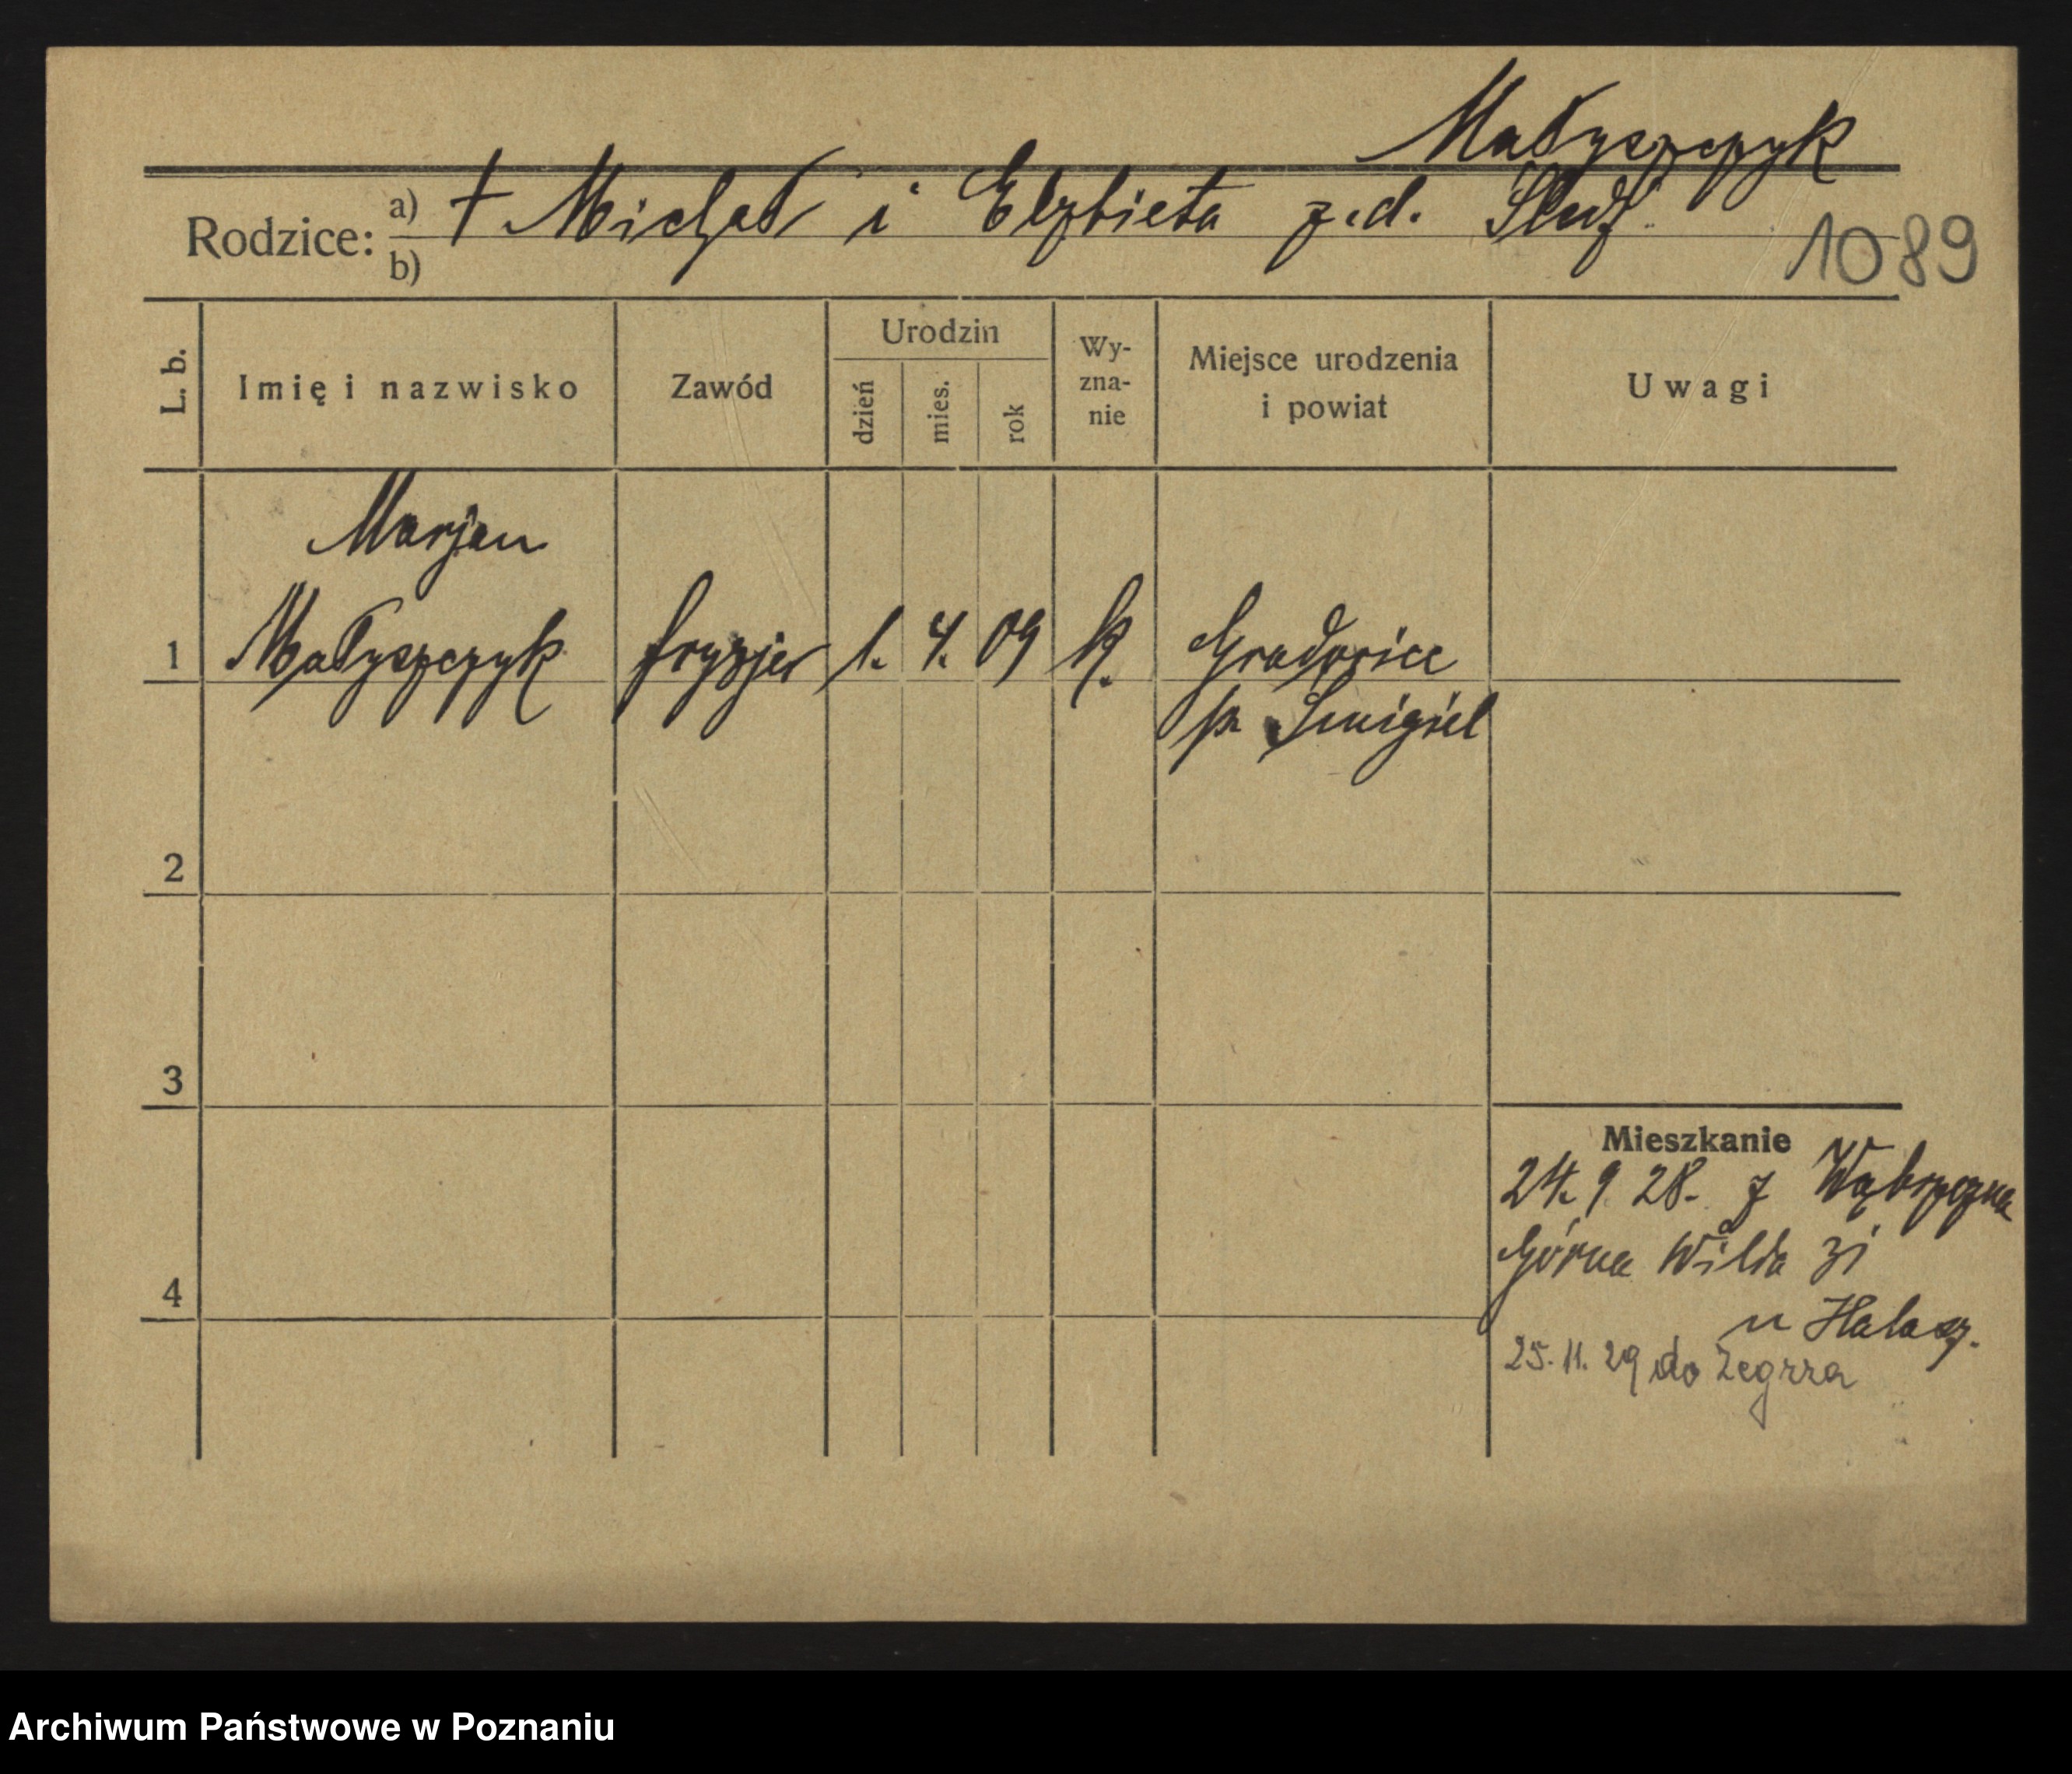 Małyszczyk
Rodzice: a) † Michał i Elżbieta z.d. Śledź
b)
1089
L. b.
Imię i nazwisko
Zawód
Urodzin
dzień
mies.
rok
Wy-
zna-
nie
Miejsce urodzenia
i powiat
Uwagi
Marjan
1 Małyszczyk fryzjer 1. 4. 09 k.
p. Śmigiel
2
3
4
Mieszkanie
24. 9. 28. z Wąbrzezna
Górna Wilda 31
u Halasz.
25.11.29 do Zegrza
Archiwum Państwowe w Poznaniu